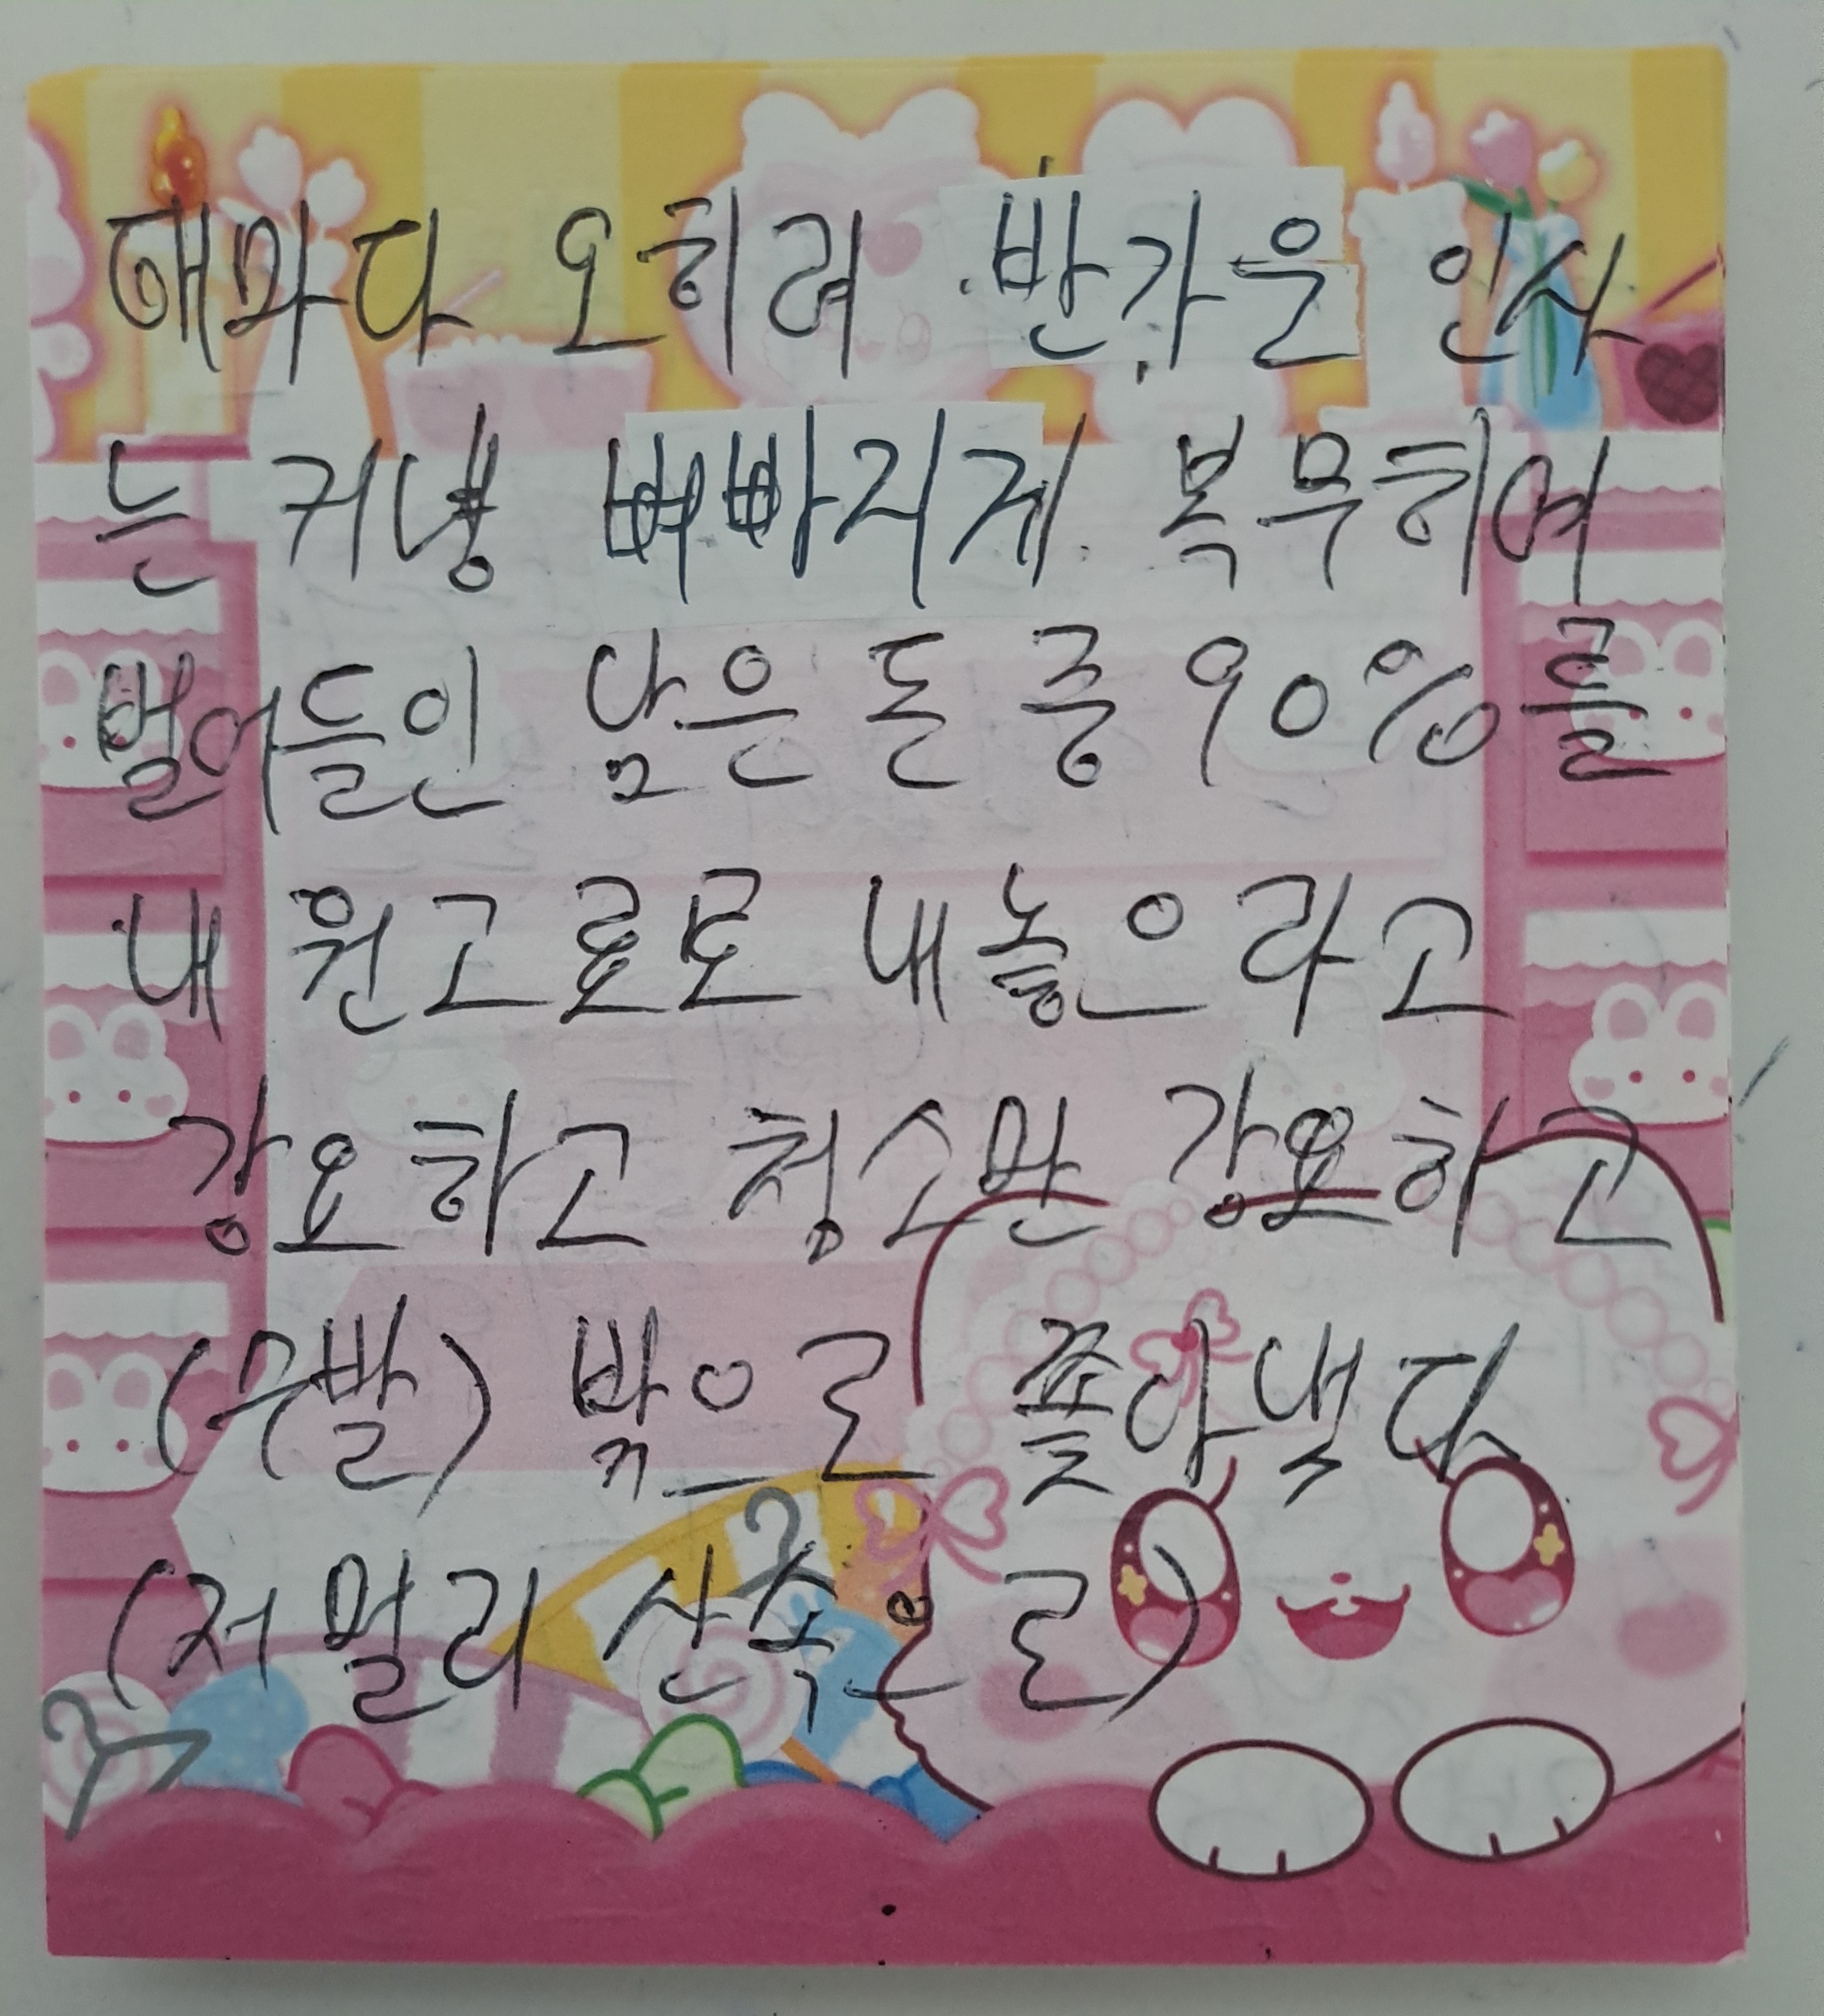 해마다 오히려 반가운 인사
는 커녕 뼈빠지게 복무하여
벌어들인 남은 돈 중 90%를
내 원고료로 내놓으라고
강요하고 청소만 강요하고
(우발) 밖으로 쫓아냈다
(저 멀리 산속으로)